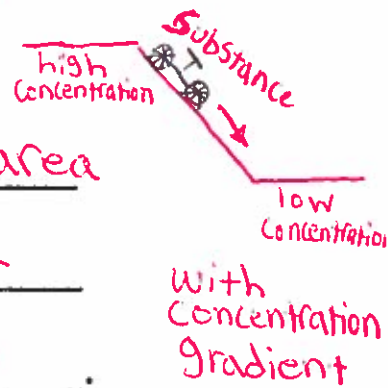 Substance
high
Concentration
area
low
Concentration
with
Concentration
gradient